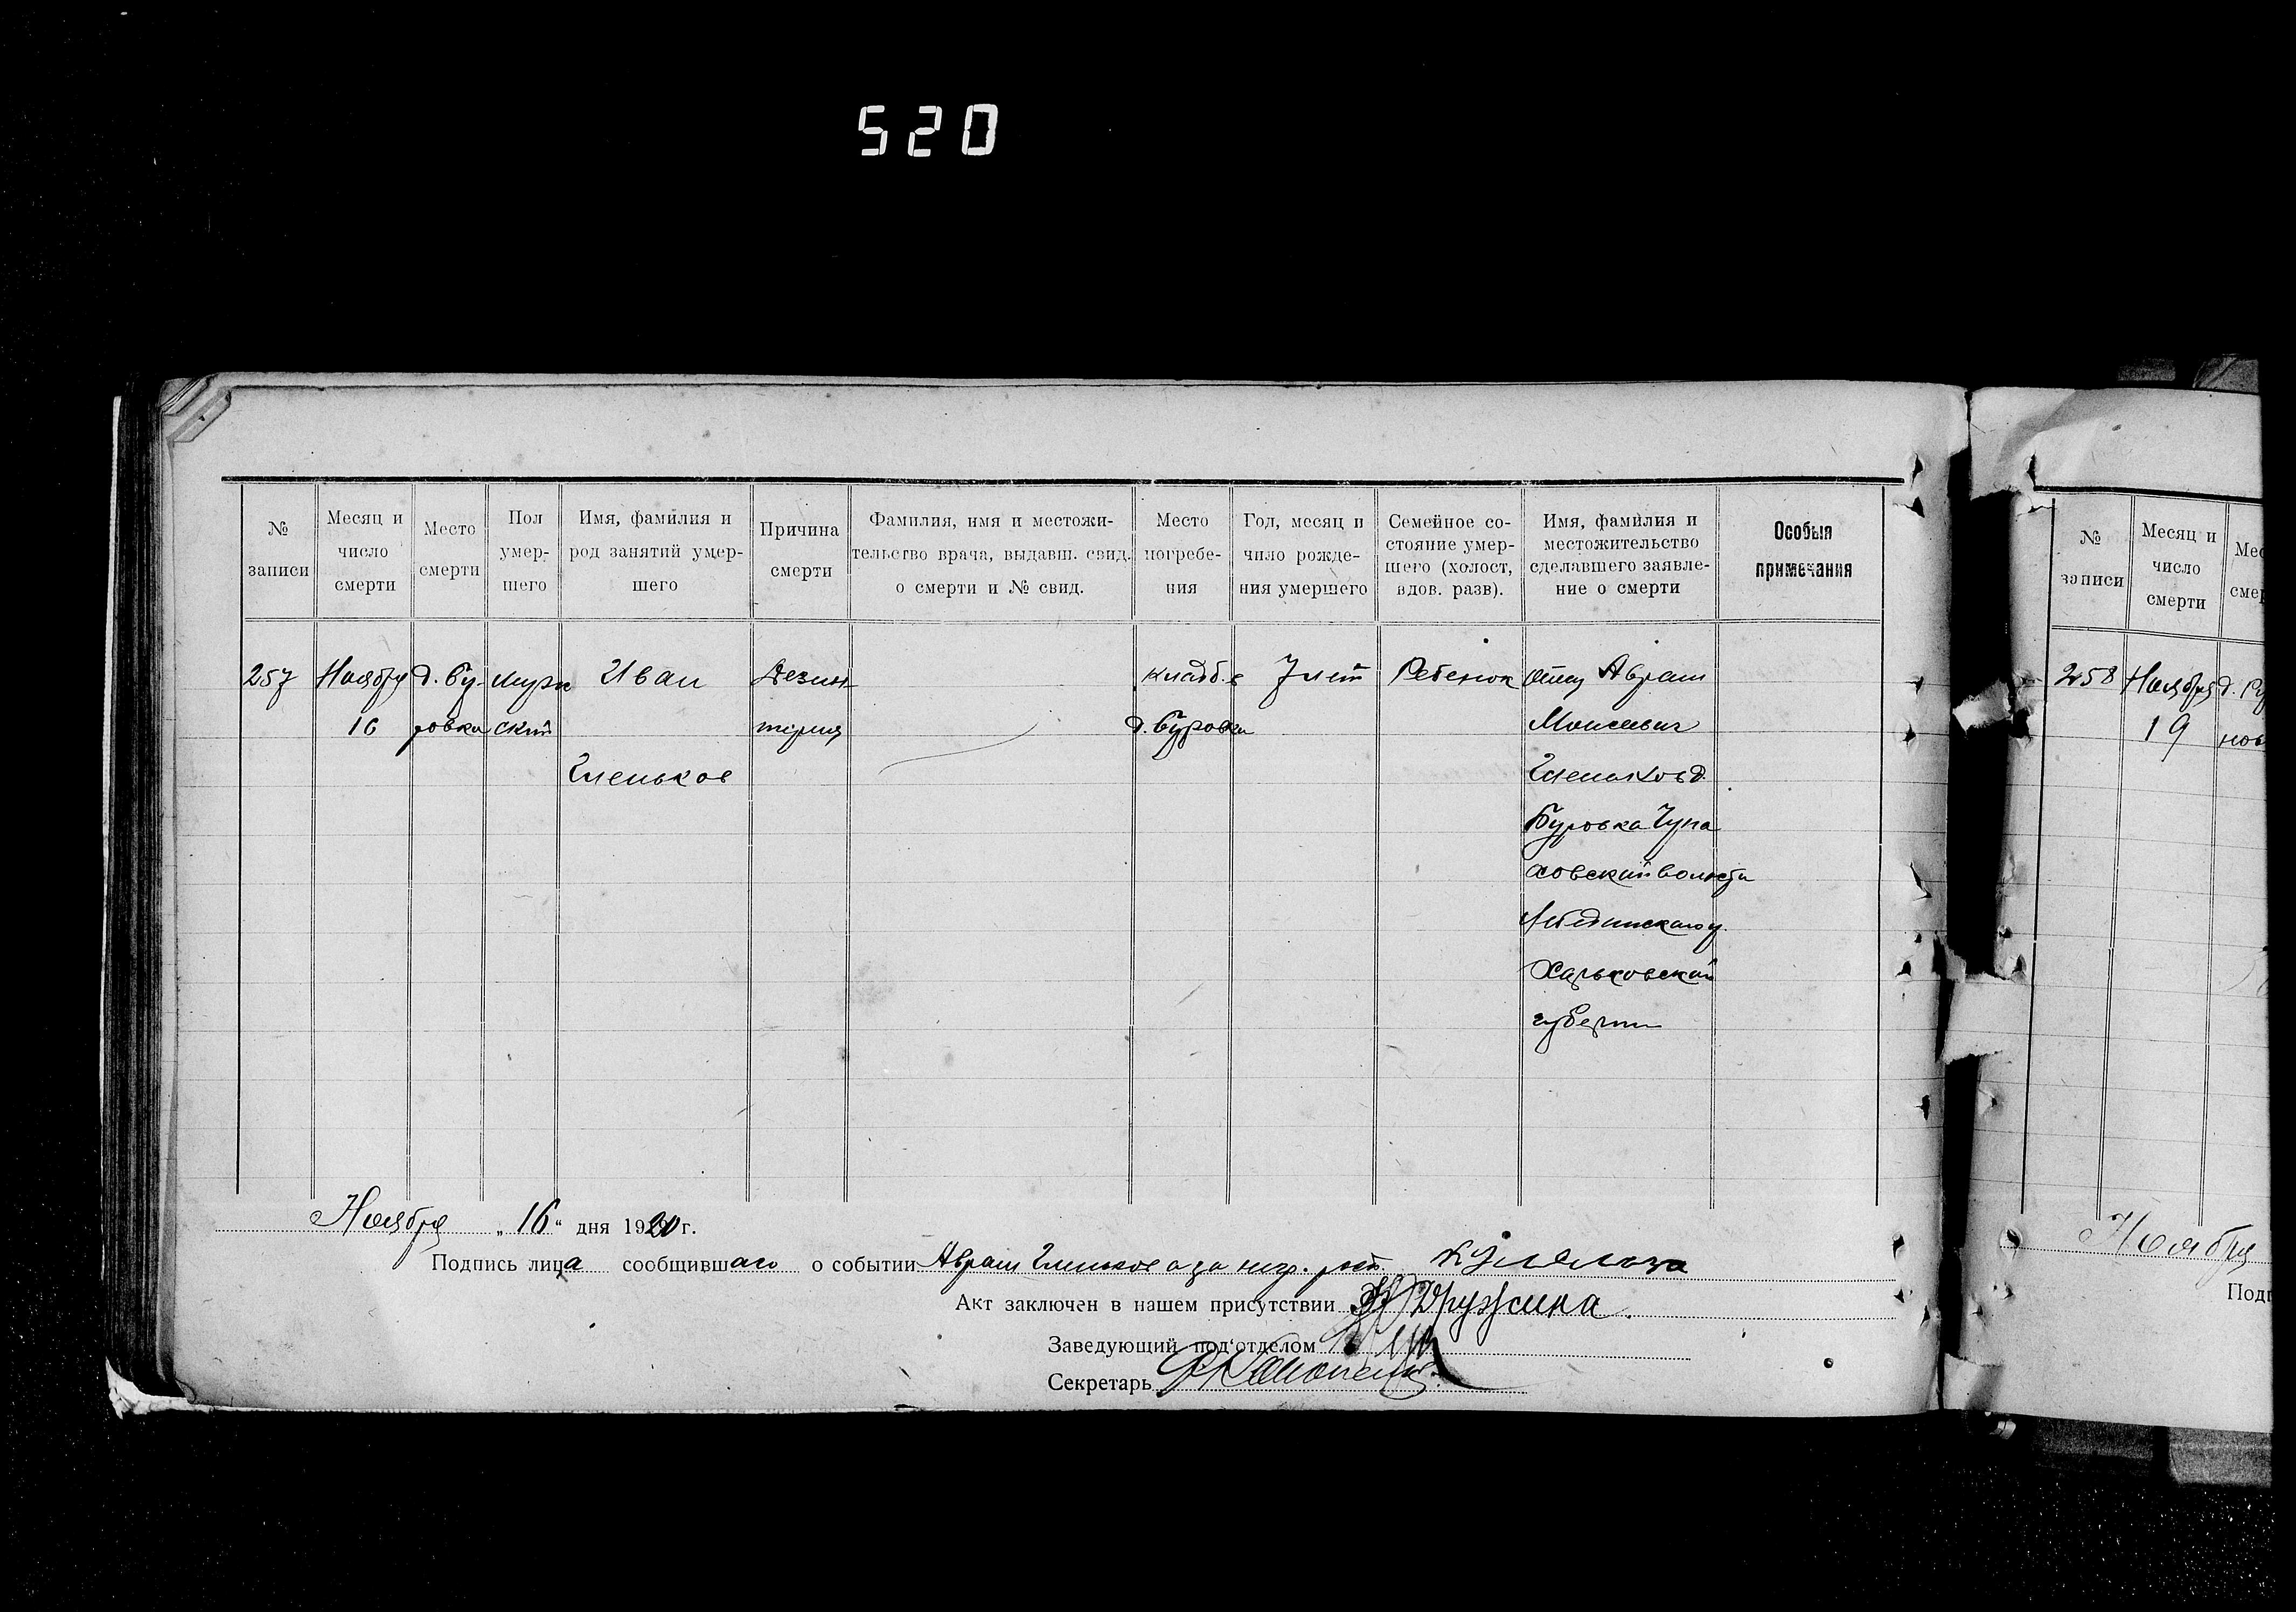 520
№ записи
Месяц и число смерти
Место смерти
Пол умер- шего
Имя, фамилия и род занятий умер- шего
Причина смерти
Фамилия, имя и местожи- тельство врача, выдавш. свид. о смерти и № свид.
Место погребе- ния
Год, месяц и чило рожде- ния умершего
Семейное со- стояние умер- шего (холост, вдов. разв).
Имя, фамилия и местожительство сделавшего заявле- ние о смерти
Особыя примечания
257
Ноября
16
д. Бу-
ровка
муж
ский
Иван
Гленьков
Дезин
терия
кладб.е
д. Буровка
7 лет
Ребенок
отец Аврам
Моисеевич
Гленьков д.
Буровка Чупа
ховский волости
Лебединскаго у.
Харьковской
губернии
Ноября „16“ дня 1920 г.
Подпись лица сообщившаго о событии Аврам Гленьков а за негр. росп.
Акт заключен в нашем присутствии Дружина.
Заведующий под'отделом
Секретарь
№ записи
Месяц и число смерти
Мес
смер
258
Ноября
19
д.
нов
Ноября
Подп